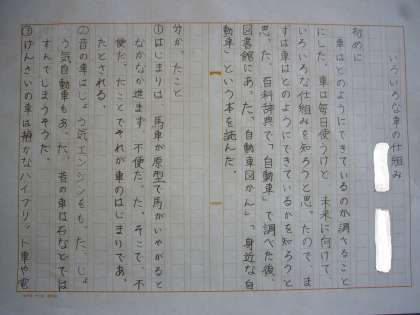 いろいろな車の仕組み
初めに
車はどのようにできているのか調べること
にした。車は毎日使うけど、未来に向けて、
いろいろな仕組みを知ろうと思ったので、ま
ずは車はどのようにできているかを知ろうと
思った。百科辞典で「自動車」で調べた後、
図書館にあった「自動車図かん」、「身近な自
動車」という本を読んだ。
分かったこと
①はじまりは、馬車が原型で馬がいやがると
なかなか進まず、不便だった。そこで、不
便だったことでそれが車のはじまりであっ
たとされる。
②昔の車はじょう気エンジンをもった、じょ
う気自動車もあった。昔の車は石などでは
すんでしまうそうだ。
③げんざいの車は静かなハイブリット車や電